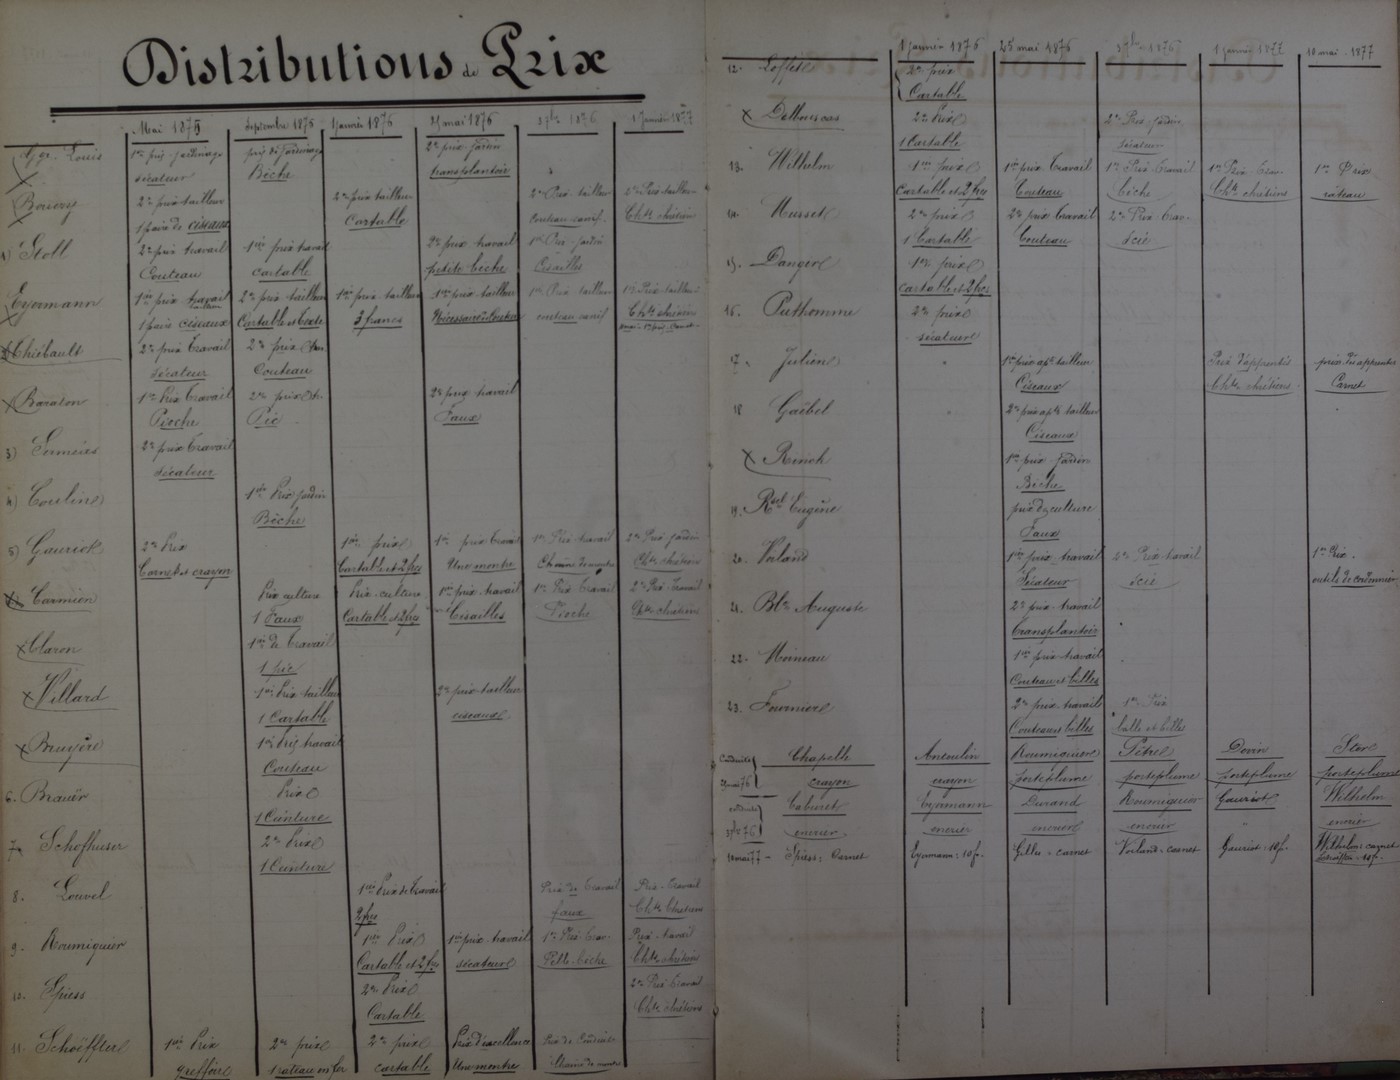 Distributions de Prix
Mai 1875 Septembre 1875 1 janvier 1876 25 mai 1876 3 7bre 1876 1 janvier 1877
Louis 1er prix jardinage prix de jardinage 2e prix jardin
sécateur Bêche transplantoir
Boivry 2e prix tailleur 2e prix tailleur 2e Prix tailleur 2e Prix tailleur
1 paire de ciseaux Cartable couteau canif Chtte chrétien
1) Stoll 2e prix travail 1er prix travail 2e prix travail 1er Prix jardin
Couteau cartable petite bêche Cisailles
Eyermann 1er prix travail tailleur 2e prix tailleur 1er prix tailleur 1er prix tailleur 1er Prix tailleur 1er Prix tailleur
1 paire ciseaux Cartable et 3 francs couteau canif Chtte chrétien
Thiébault 2e prix travail 2e prix
sécateur Couteau
Baraton 1er Prix travail 2e prix 2e prix travail
Pioche Pic Faux
3) 2e prix travail
sécateur
4) Couline 1er Prix jardin
Bêche
5) Gaurick 2e Prix 1er prix 1er prix travail 1er Prix travail 2e Prix jardin
Carnet et crayon Cartable et 2 frcs Une montre Chaine de montre Chtte chrétien
Carmien Prix culture Prix culture 1er prix travail 1er Prix travail 2e Prix travail
1 Faux Cartable et 2 frcs Cisailles Pioche Chtte chrétien
Claron 1er de travail
1 pic
Villard 1er Prix tailleur 2e prix tailleur
1 Cartable ciseaux
Bruyère 1er Prix travail
Couteau
6. Brauër Prix
1 Ceinture
7. Schofhuser 2e Prix
1 Ceinture
8. Louvel 1er Prix de travail Prix de travail Prix travail
2 frcs faux Chtte Chrétien
9. Roumiguier 1er Prix 1er prix travail 1er Prix trav. Prix travail
Cartable et 2 frcs sécateur Pelle-bêche Chtte chrétien
10. Spiess 2e Prix 2e Prix travail
Cartable Chtte chrétien
11. Schoëffter 1er Prix 2e prix 2e prix Prix d'excellence Prix de Conduite
greffoir 1 rateau en fer cartable Une montre Chaine de montre
1 janvier 1876 25 mai 1876 3 7bre 1876 1 janvier 1877 10 mai 1877
12. 2e prix
Cartable
Delbuscas 2e Prix 2e Prix jardin
1 Cartable sécateur
13. Wilhelm 1er prix 1er prix travail 1er Prix travail 1er Prix trav. 1er Prix
Cartable et 2 frcs Couteau bêche Chtte chrétien râteau
14. Mursel 2e prix 2e prix travail 2e Prix trav.
1 Cartable Couteau scie
15. Danger 1er prix
cartable et 2 frcs
16. Puthomme 2e prix
sécateur
17. Julien 1er prix apt tailleur Prix d'apprentis prix des apprentis
Ciseaux Chtte chrétien Carnet
18 Gaëbel 2e prix apt tailleur
Ciseaux
Rinch 1er prix jardin
Bêche
19. Eugène prix de culture
Faux
20. Voiland 1er prix travail 2e Prix travail 1er Prix
Sécateur scie outils de cordonnier
21. Auguste 2e prix travail
transplantoir
22. Moineau 1er prix travail
Couteau et billes
23. Fournier 2e prix travail 1er Prix
Couteau et billes balle et billes
Conduite 25 mai 76 Chapelle Antoulin Roumiguier Pétrel Devin Ster
crayon crayon porteplume porteplume porteplume porteplume
conduite 3 7bre 76 Caburet Eyermann Durand Roumiguier Gauriot Wilhelm
encrier encrier encrier encrier " encrier
10 mai 77 - Spiess : Carnet Eyermann : 10 f. Gilles : carnet Voiland : carnet Gauriot : 10 f. Wilhelm : carnet